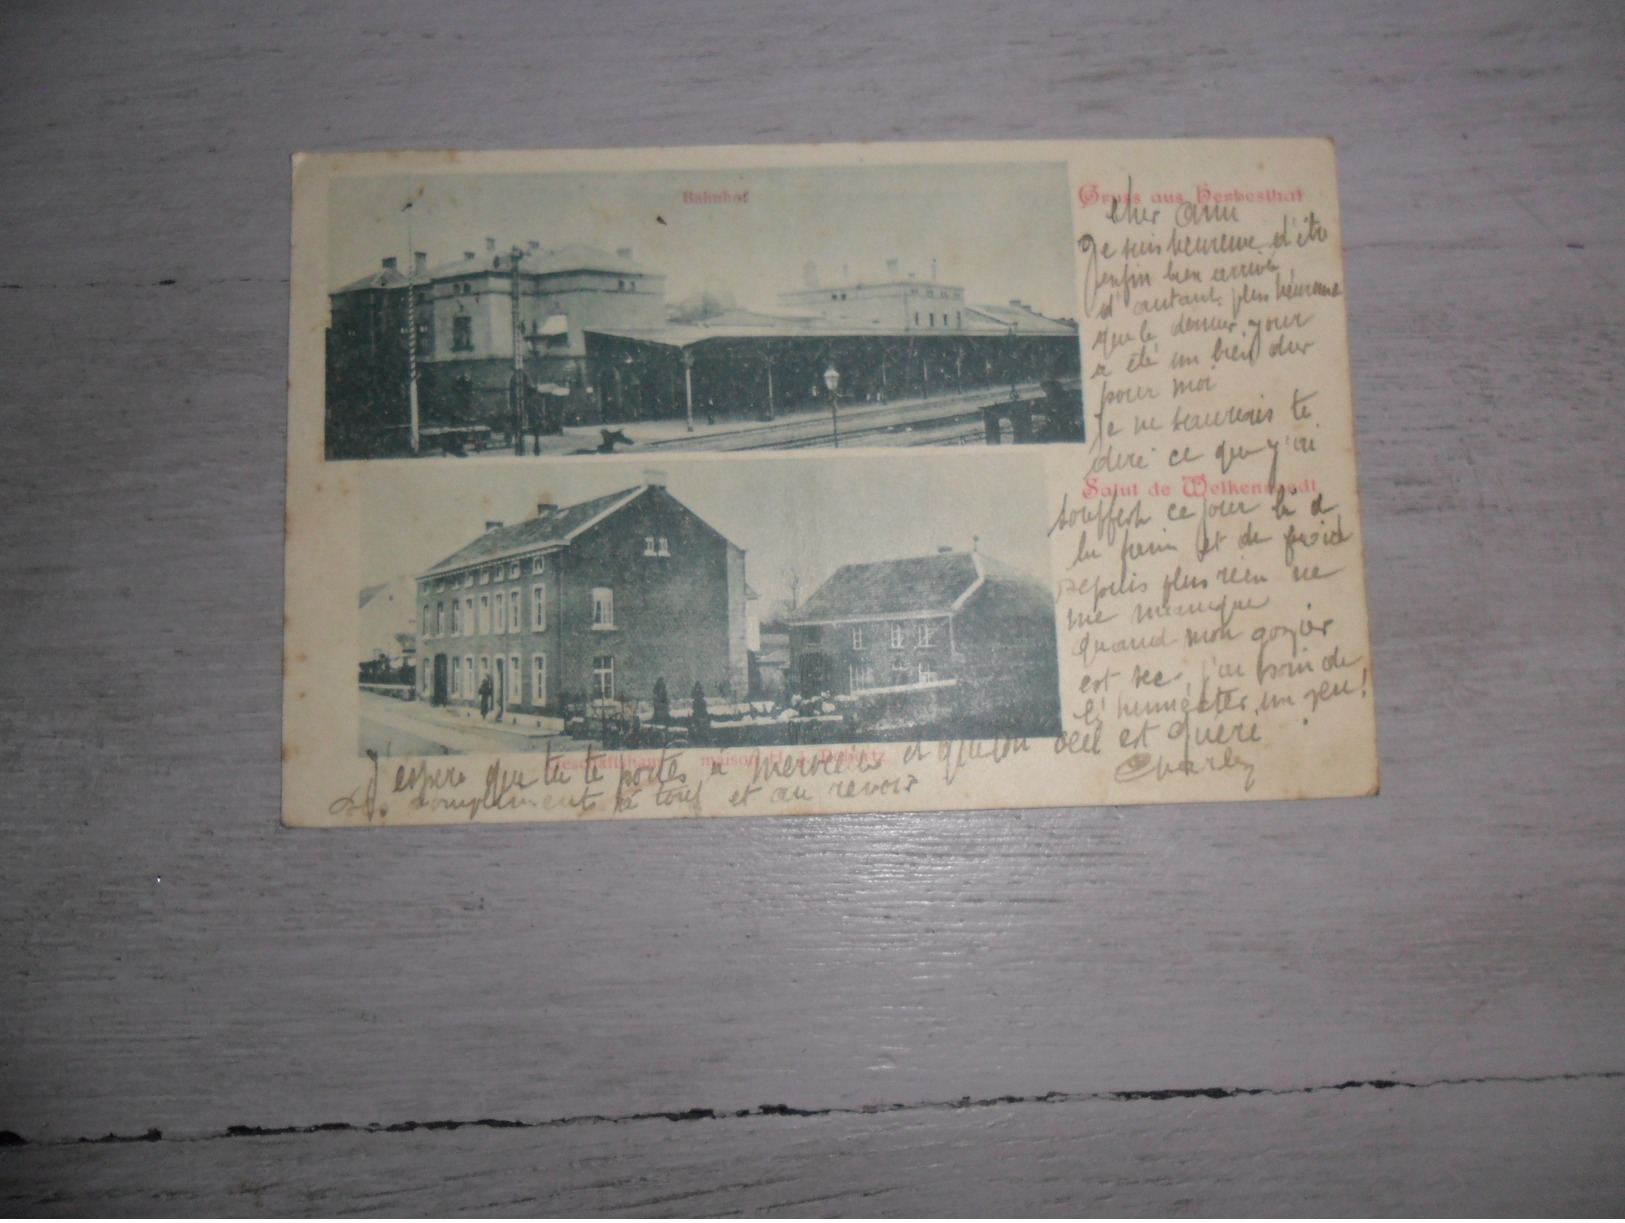 Bahnhof
Gruss aus Herbesthal
Cher ami
Je suis heureux d'être
enfin bien arrivé
d'autant plus heureux
que le dernier jour
a été un bien dur
pour moi
Je ne saurais te
dire ce que j'ai
Salut de Welkenraedt
souffert ce jour là d
la faim et du froid
Depuis plus rien ne
me manque
quand mon gozier
est sec j'ai soin de
l'humecter un peu!
Geschäftshaus maison H. Bebertz
J'espère que tu te portes à merveille et que ton oeil est guéri
Des compliments à tous et au revoir
Charley